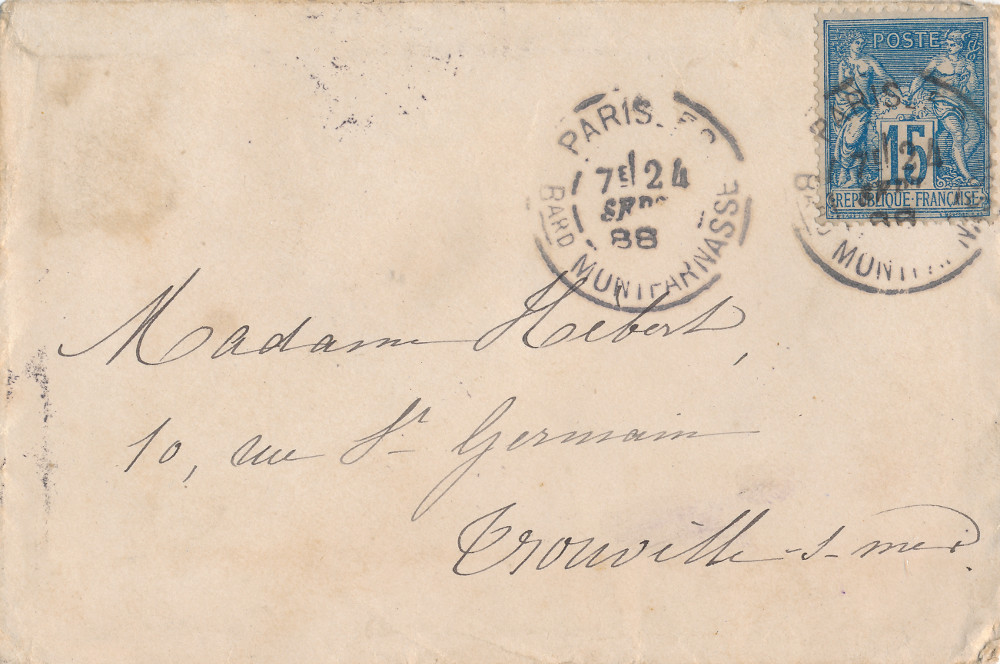 POSTE
15
REPUBLIQUE FRANÇAISE
PARIS
7E 24
SEPT
88
BARD MONTPARNASSE
PARIS
7E 24
SEPT
88
BARD MONTPARNASSE
Madame Hébert,
10, rue St Germain
Trouville-s-mer.